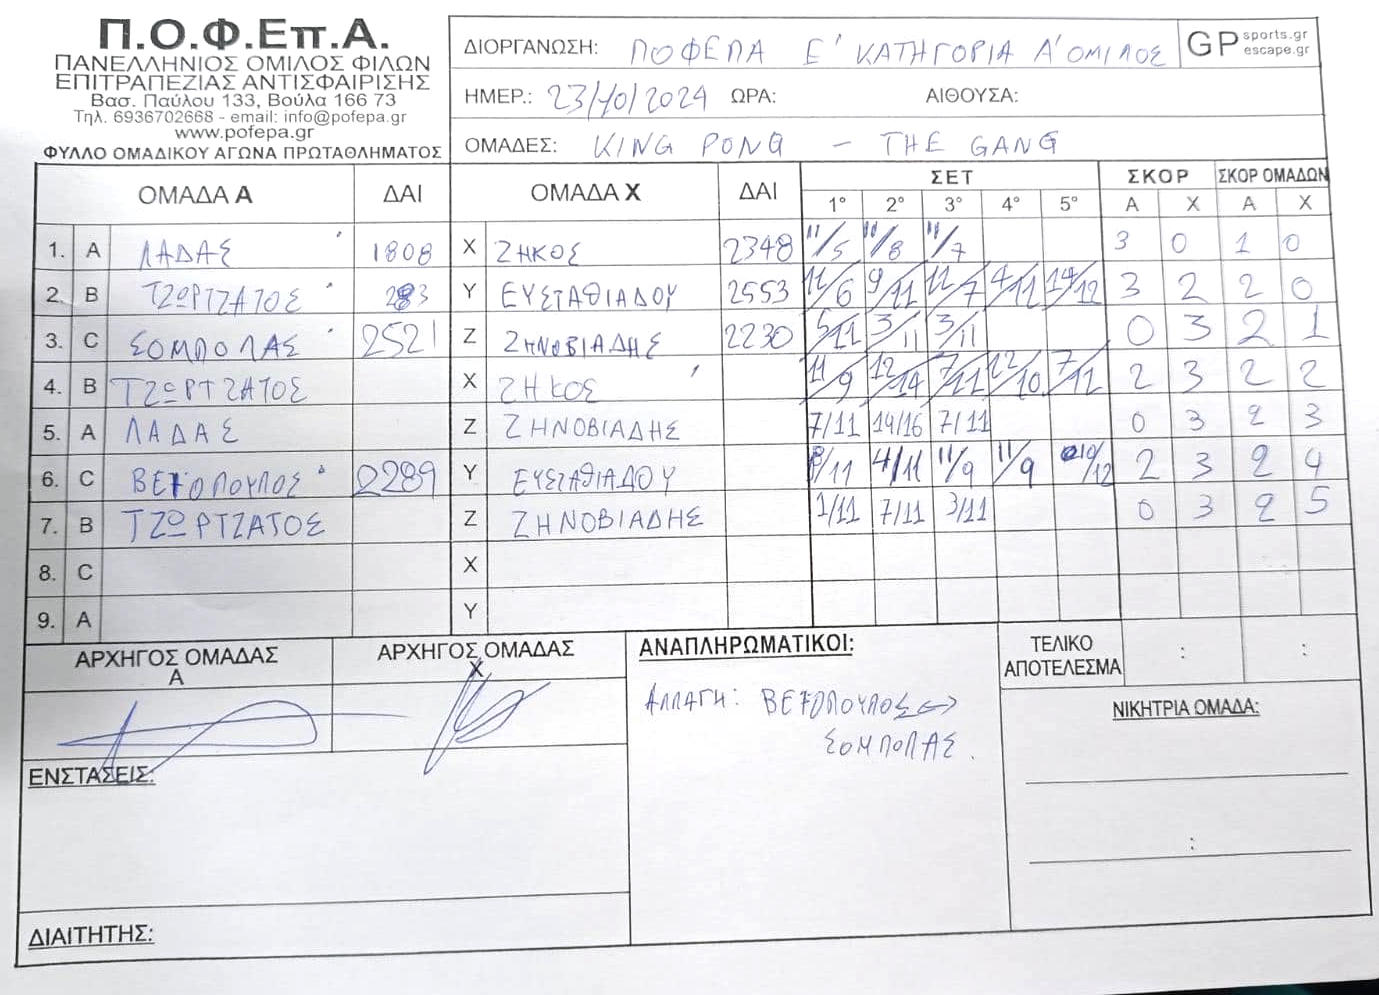 Π.Ο.Φ.Επ.Α.
ΠΑΝΕΛΛΗΝΙΟΣ ΟΜΙΛΟΣ ΦΙΛΩΝ
ΕΠΙΤΡΑΠΕΖΙΑΣ ΑΝΤΙΣΦΑΙΡΙΣΗΣ
Βασ. Παύλου 133, Βούλα 166 73
Τηλ. 6936702668 - email: info@pofepa.gr
www.pofepa.gr
ΦΥΛΛΟ ΟΜΑΔΙΚΟΥ ΑΓΩΝΑ ΠΡΩΤΑΘΛΗΜΑΤΟΣ
ΔΙΟΡΓΑΝΩΣΗ: ΠΟΦΕΠΑ Ε' ΚΑΤΗΓΟΡΙΑ Α' ΟΜΙΛΟΣ
GP sports.gr
escape.gr
ΗΜΕΡ.: 23/10/2024 ΩΡΑ: ΑΙΘΟΥΣΑ:
ΟΜΑΔΕΣ: KING PONG - THE GANG
ΟΜΑΔΑ Α ΔΑΙ ΟΜΑΔΑ Χ ΔΑΙ ΣΕΤ ΣΚΟΡ ΣΚΟΡ ΟΜΑΔΩΝ
1° 2° 3° 4° 5° Α Χ Α Χ
1. Α ΛΑΔΑΣ 1808 Χ ΖΗΚΟΣ 2348 11/5 11/8 11/7 3 0 1 0
2. Β ΤΖΩΡΤΖΑΤΟΣ Υ ΕΥΣΤΑΘΙΑΔΟΥ 2553 11/6 9/11 12/7 4/11 14/12 3 2 2 0
3. C ΣΟΜΠΟΛΑΣ 2521 Ζ ΖΗΝΟΒΙΑΔΗΣ 2230 5/11 3/11 3/11 0 3 2 1
4. Β ΤΖΩΡΤΖΑΤΟΣ Χ ΖΗΚΟΣ 11/9 12/14 7/11 12/10 7/12 2 3 2 2
5. Α ΛΑΔΑΣ Ζ ΖΗΝΟΒΙΑΔΗΣ 7/11 14/16 7/11 0 3 2 3
6. C ΒΕΖΟΠΟΥΛΟΣ 2289 Υ ΕΥΣΤΑΘΙΑΔΟΥ 8/11 4/11 11/9 11/9 10/12 2 3 2 4
7. Β ΤΖΩΡΤΖΑΤΟΣ Ζ ΖΗΝΟΒΙΑΔΗΣ 1/11 7/11 3/11 0 3 2 5
8. C Χ
9. Α Υ
ΑΡΧΗΓΟΣ ΟΜΑΔΑΣ
Α
ΑΡΧΗΓΟΣ ΟΜΑΔΑΣ
Χ
ΑΝΑΠΛΗΡΩΜΑΤΙΚΟΙ:
ΑΛΛΑΓΗ: ΒΕΖΟΠΟΥΛΟΣ <=>
ΣΟΜΠΟΛΑΣ.
ΤΕΛΙΚΟ
ΑΠΟΤΕΛΕΣΜΑ : :
ΝΙΚΗΤΡΙΑ ΟΜΑΔΑ:
:
ΕΝΣΤΑΣΕΙΣ:
ΔΙΑΙΤΗΤΗΣ: